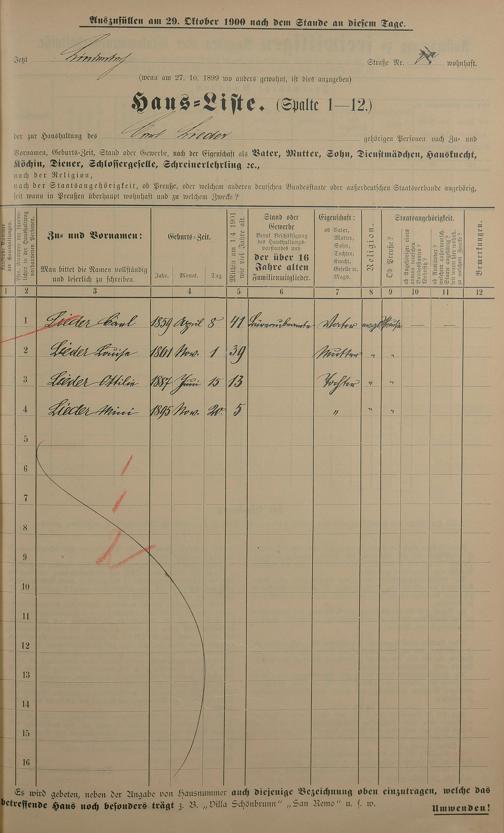 Auszufüllen am 29. Oktober 1900 nach dem Stande an diesem Tage.
Jetzt Straße Nr. wohnhaft.
(wenn am 27. 10. 1899 wo anders gewohnt, ist dies anzugeben)
Haus-Liste. (Spalte 1—12.)
der zur Haushaltung des Carl Lieder gehörigen Personen nach Zu- und
Vornamen, Geburts-Zeit, Stand oder Gewerbe, nach der Eigenschaft als Vater, Mutter, Sohn, Dienstmädchen, Hausknecht,
Köchin, Diener, Schlossergeselle, Schreinerlehrling ꝛc.,
nach der Religion,
nach der Staatsangehörigkeit, ob Preuße, oder welchem anderen deutschen Bundesstaate oder außerdeutschen Staatsverbande angehörig,
seit wann in Preußen überhaupt wohnhaft und zu welchem Zwecke?
Zu- und Vornamen:
Man bittet die Namen vollständig und leserlich zu schreiben.
Geburts-Zeit.
Jahr. Monat. Tag.
Mithin am 1/4 1901 wie viel Jahre alt.
Stand oder
Gewerbe
der über 16
Jahre alten
Familienmitglieder.
Eigenschaft:
ob Vater,
Mutter,
Sohn,
Tochter,
Knecht,
Geselle u.
Magd.
Religion.
Staatsangehörigkeit.
Ob Preuße?
Bemerkungen.
1 2 3 4 5 6 7 8 9 10 11 12
1 Lieder Carl 1859 April 8 41 Vater evgl. Preuße — —
2 Lieder Louise 1861 Nov. 1 39 Mutter " "
3 Lieder Ottilie 1887 Juni 15 13 Tochter " "
4 Lieder Mini 1895 Nov. 20 5 " " "
5
6
7
8
9
10
11
12
13
14
15
16
Es wird gebeten, neben der Angabe von Hausnummer auch diejenige Bezeichnung oben einzutragen, welche das
betreffende Haus noch besonders trägt z. B. „Villa Schönbrunn" „San Remo" u. s. w.
Umwenden!